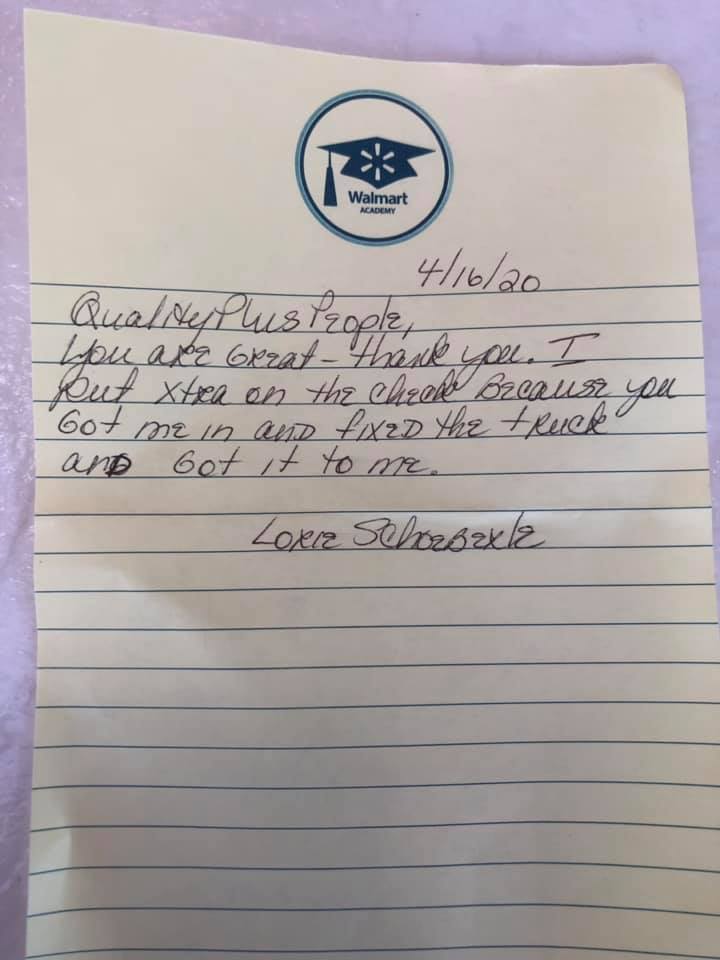 Walmart
ACADEMY
4/16/20
Quality Plus People,
You are Great - thank you. I
put xtra on the check Because you
Got me in and fixed the truck
and Got it to me.
Lorie Schoeberle